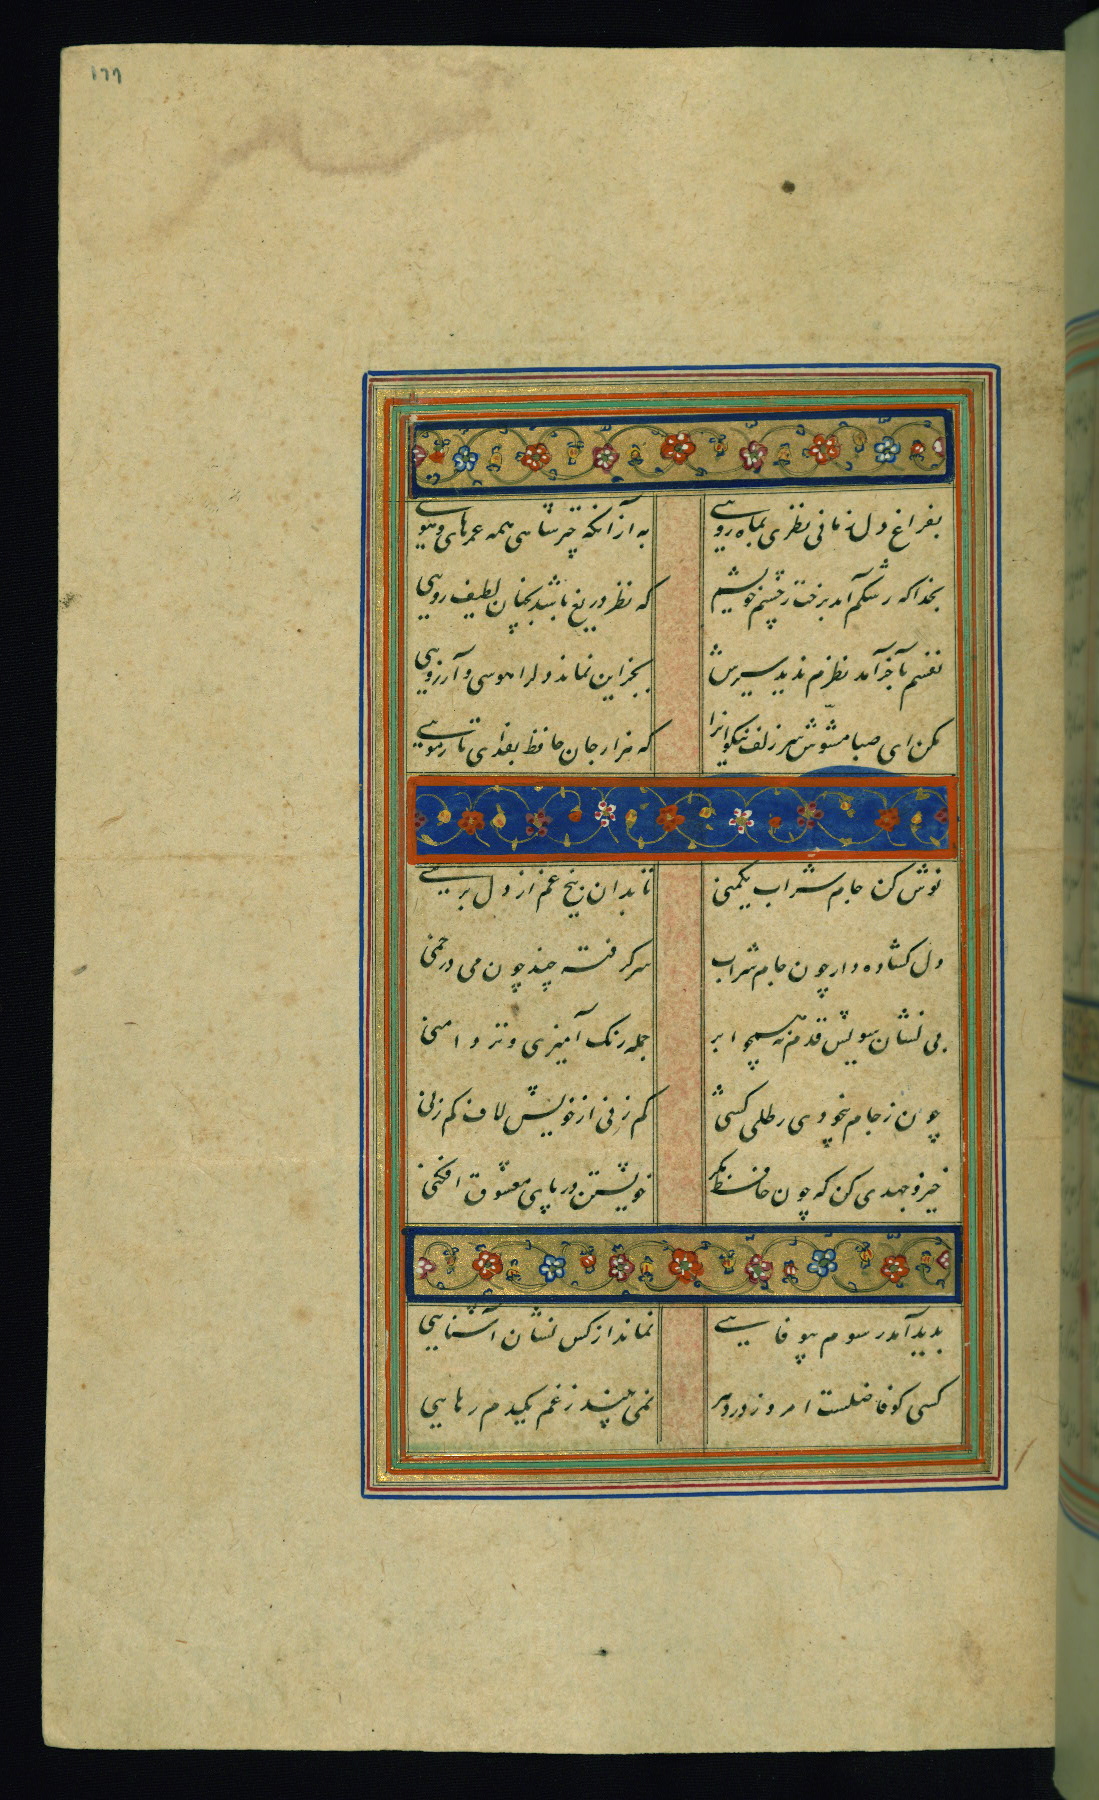 ۱۷۷
بفراغ دل زمانی نظری بماه رویی
به از آنکه چتر شاهی همه عمر های و هویی
بخدا که رشکم آمد برخت ز چشم خویشم
که نظر دریغ باشد بچنان لطیف رویی
نفسم بآخر آمد نظرم ندید سیرش
بجز این نماند دلرا هوسی و آرزویی
مکن ای صبا مشوش سر زلف نیکوانرا
که هزار جان حافظ بفدای تار مویی
نوش کن جام شراب یکمنی
تا بدان بیخ غم از دل بر
دل گشاده دار چون جام شراب
سرگرفته چند چون می در خمی
بی نشان سویش قدم نه همچو ابر
جمله رنگ آمیزی و تر دامنی
چون ز جام بیخودی رطلی کشی
کم زنی از خویش لاف کم زنی
خیز و جهدی کن که چون حافظ مگر
خویشتن در پای معشوق افکنی
پدید آمد رسوم بیوفایی
نماند از کس نشان آشنایی
کسی کو فاضلست امروز در دهر
نمی‌بیند ز غم یکدم رهایی